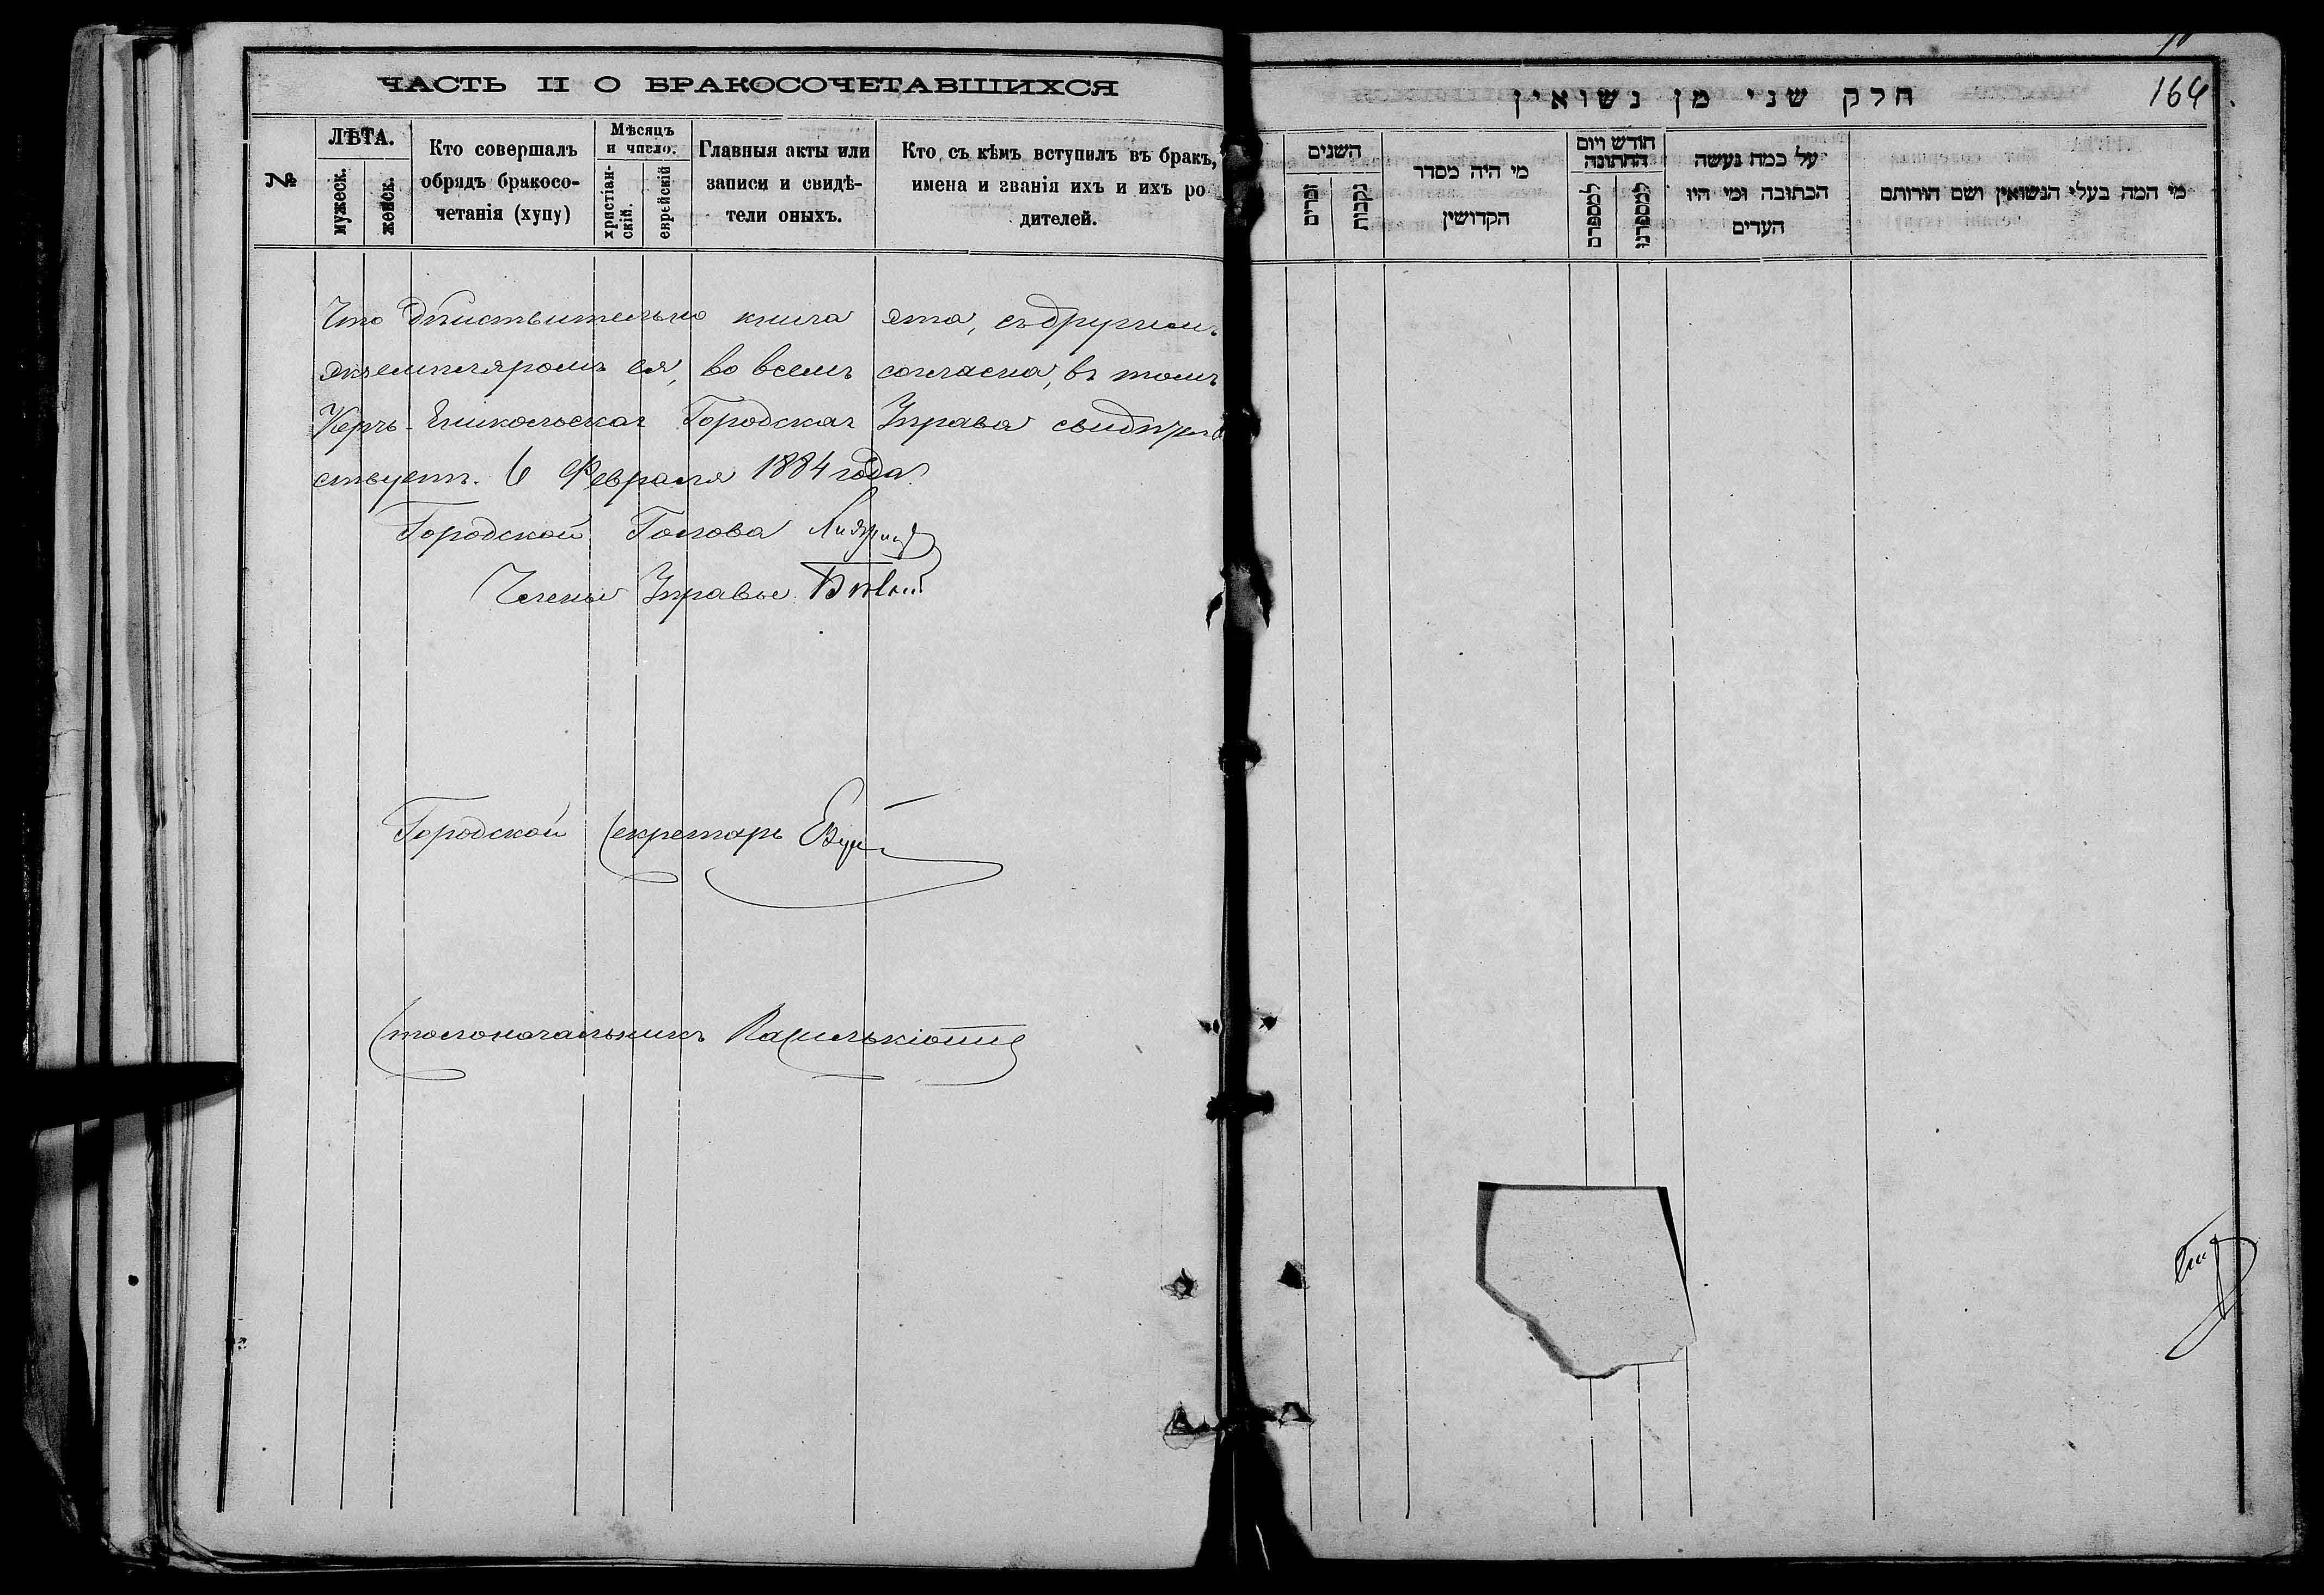 ЧАСТЬ II О БРАКОСОЧЕТАВШИХСЯ
№
ЛѢТА.
мужеск.
женск.
Кто совершалъ
обрядъ бракосо-
четанія (хупу)
Мѣсяцъ
и число.
христіан-
скій.
еврейскій
Главныя акты или
записи и свидѣ-
тели оныхъ.
Кто, съ кѣмъ вступилъ въ бракъ,
имена и званія ихъ и ихъ ро
дителей.
Что дѣйствительно книга эта, съ другимъ
экземпляромъ ея, во всемъ согласна, въ томъ
Керчь-Еникольская Городская Управа свидѣтель
ствуетъ. 6 Февраля 1884 года.
Городской Голова
Членъ Управы
Городской Секретарь
Столоначальникъ
חלק שני מן נשואין
164
השנים
זכרים
נקבות
מי היה מסדר
הקדושין
חודש ויום
החתונה
למספרם
למספרנו
על כמה נעשה
הכתובה ומי היו
העדים
מי המה בעלי הנשואין ושם הורותם